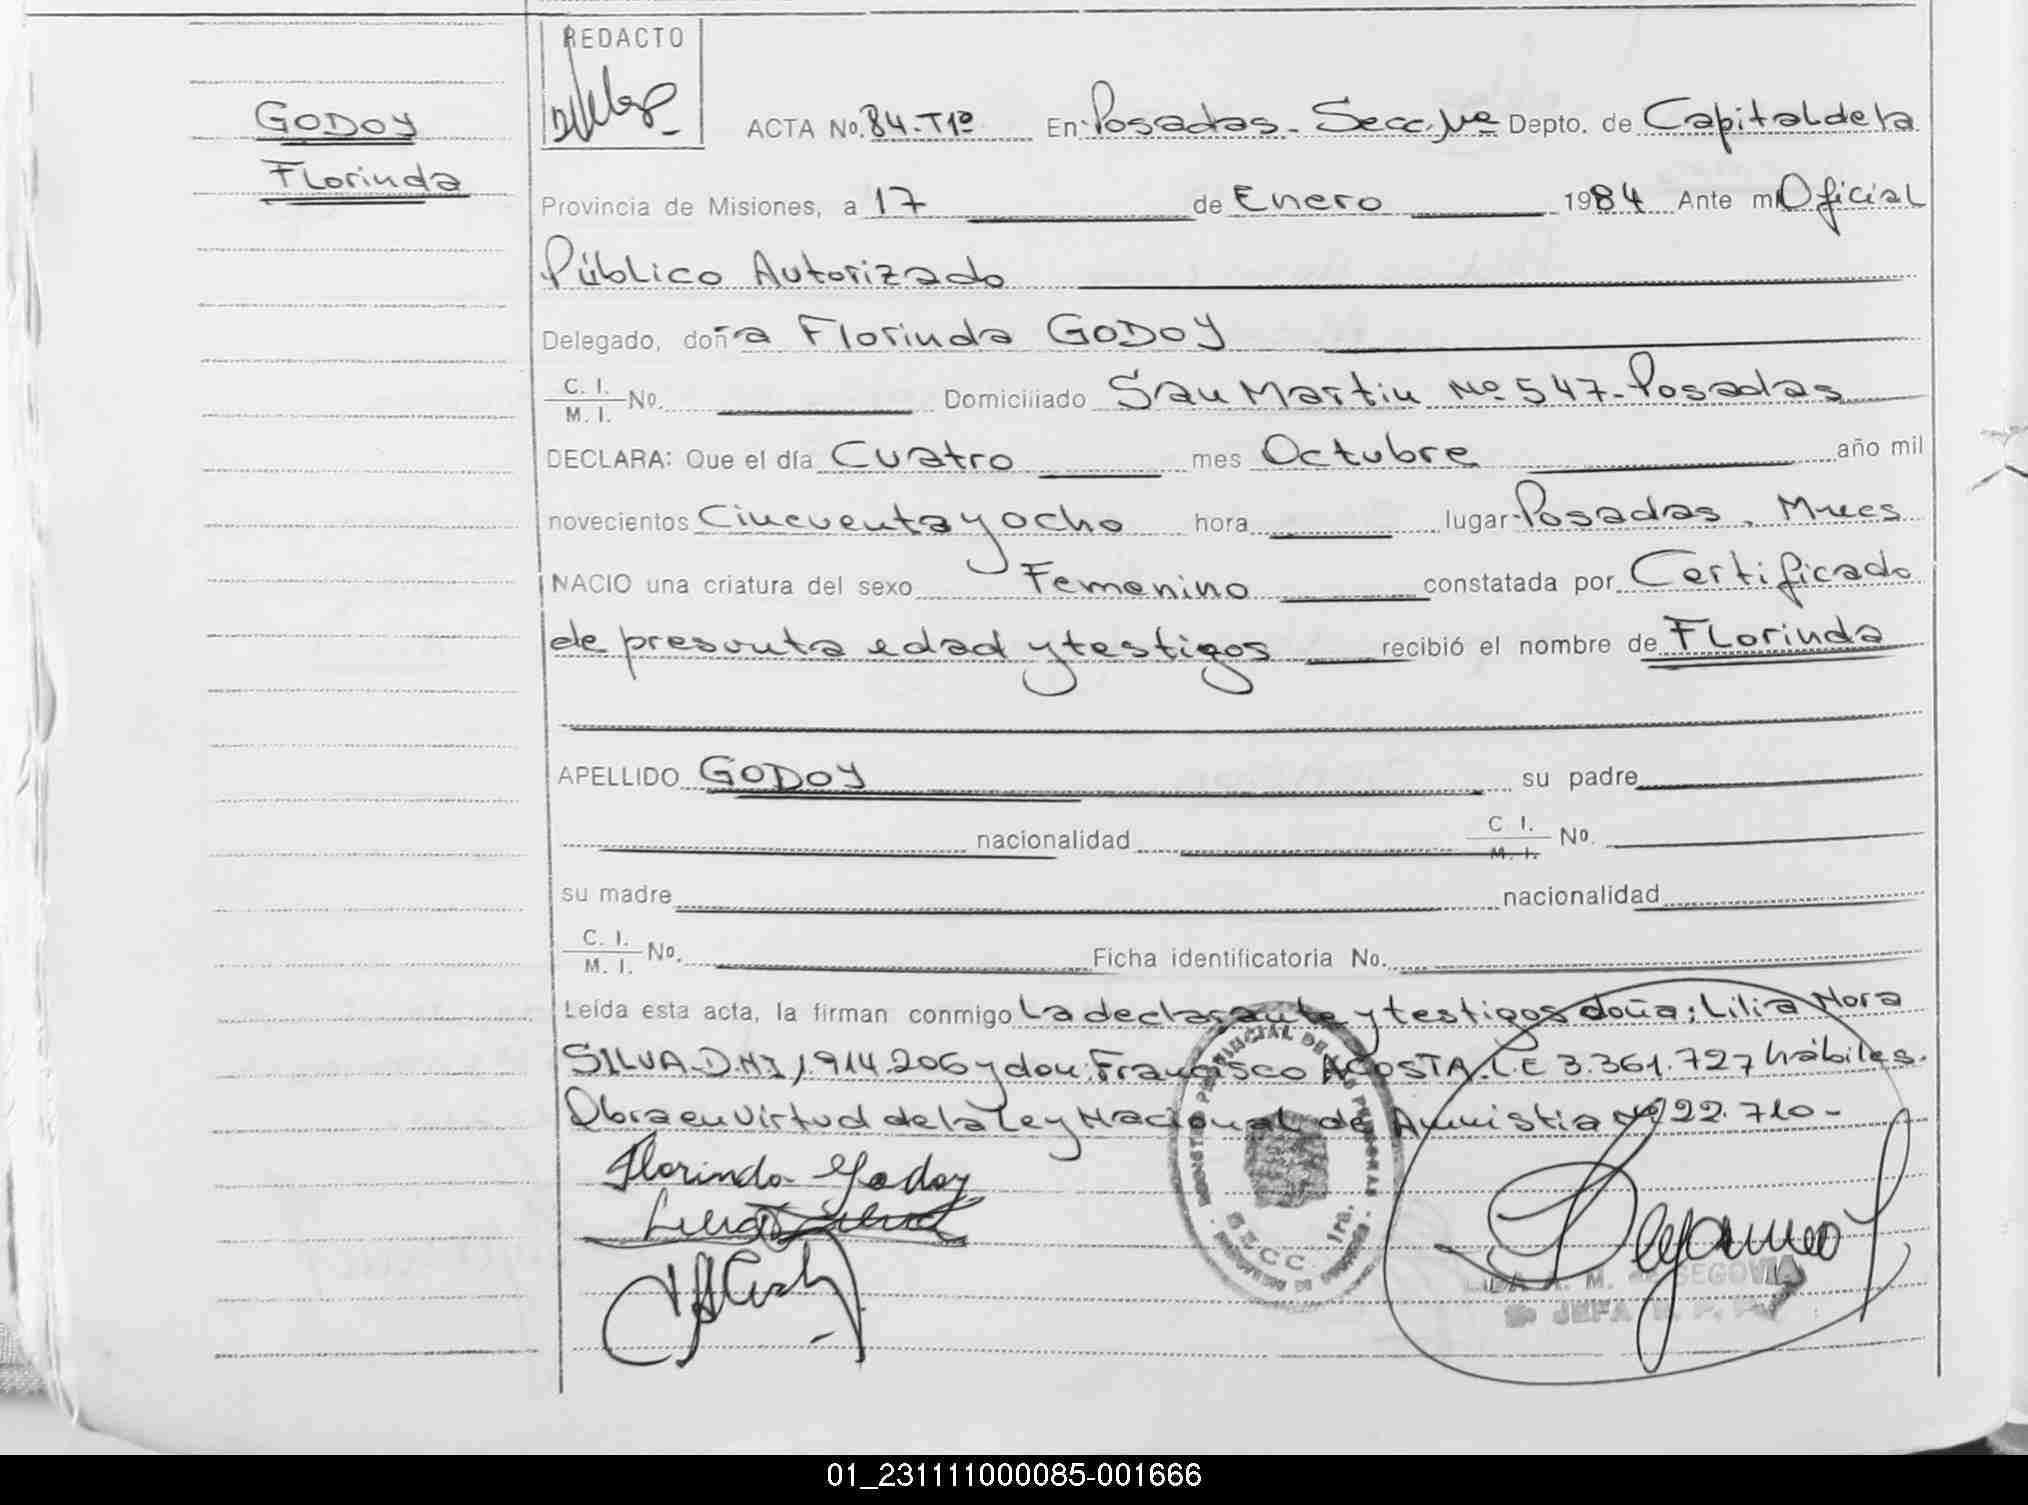 GODOY
Florinda
REDACTO
ACTA No. 84-T1º En Posadas - Secc. 1ra Depto. de Capital de la
Provincia de Misiones, a 17 de Enero 1984 Ante mi Oficial
Público Autorizado
Delegado, doña Florinda GODOY
C. I. / M. I. No. Domiciliado San Martin Nº 547 - Posadas
DECLARA: Que el día Cuatro mes Octubre año mil
novecientos Cincuenta y ocho hora lugar Posadas, Mnes
NACIO una criatura del sexo Femenino constatada por Certificado
de presunta edad y testigos recibió el nombre de Florinda
APELLIDO GODOY su padre
nacionalidad C. I. / M. I. No.
su madre nacionalidad
C. I. / M. I. No. Ficha identificatoria No.
Leída esta acta, la firman conmigo La declarante y testigos doña: Lilia Nora
SILVA D.N.I 1.914.206 y don: Francisco ACOSTA L.E 3.361.727 hábiles.
Obra en virtud de la Ley Nacional de Amnistia Nº 22.710 -
Florinda Godoy
SECC. 1ra.
A. M. de SEGOVIA
JEFA R. P. P.
01_231111000085-001666